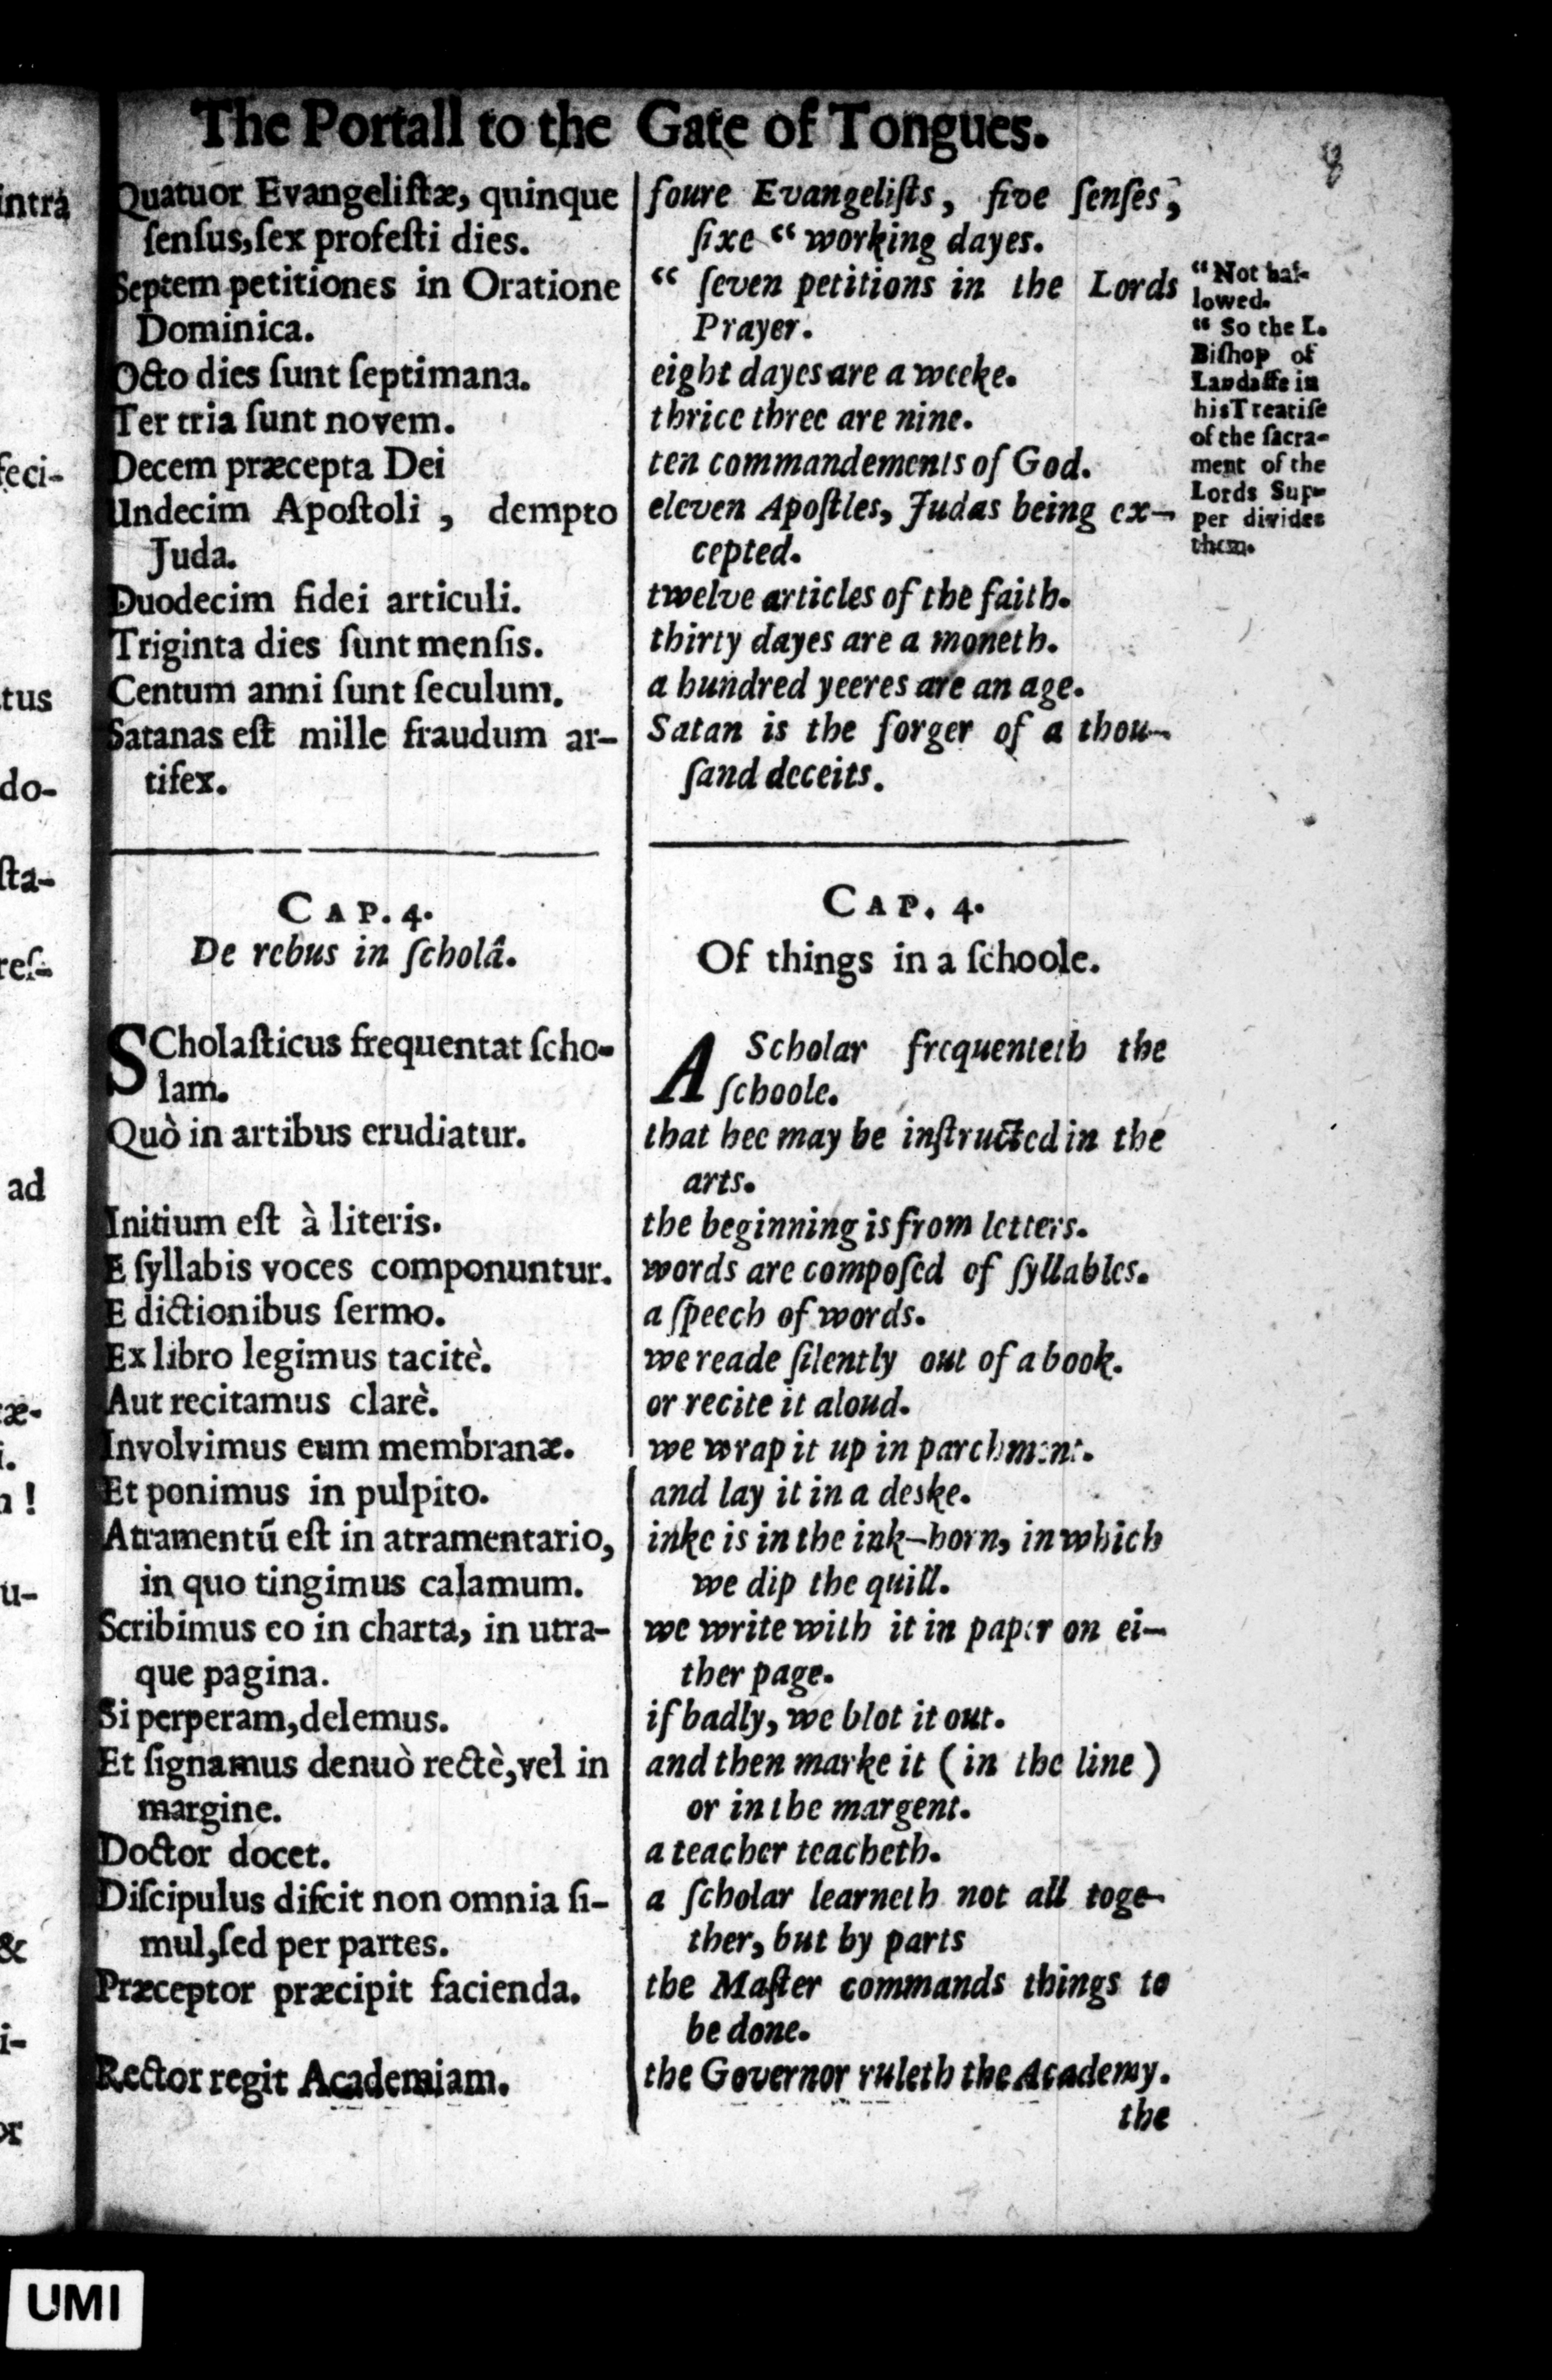 The Portall to the Gate of Tongues.
8
Quatuor Evangeliſtæ, quinque
ſenſus,ſex profeſti dies.
Septem petitiones in Oratione
Dominica.
Octo dies ſunt ſeptimana.
Ter tria ſunt novem.
Decem præcepta Dei
Undecim Apoſtoli , dempto
Juda.
Duodecim fidei articuli.
Triginta dies ſunt menſis.
Centum anni ſunt ſeculum.
Satanas eſt mille fraudum ar-
tifex.
foure Evangeliſts, five ſenſes,
ſixe “ working dayes.
“ ſeven petitions in the Lords
Prayer.
eight dayes are a weeke.
thrice three are nine.
ten commandements of God.
eleven Apoſtles, Judas being ex-
cepted.
twelve articles of the faith.
thirty dayes are a moneth.
a hundred yeeres are an age.
Satan is the forger of a thou-
ſand deceits.
“ Not hal-
lowed.
“ So the L.
Biſhop of
Landaffe in
his Treatiſe
of the ſacra-
ment of the
Lords Sup-
per divides
them.
CAP. 4.
De rebus in ſcholâ.
SCholaſticus frequentat ſcho-
lam.
Quò in artibus erudiatur.
Initium eſt à literis.
E ſyllabis voces componuntur.
E dictionibus ſermo.
Ex libro legimus tacitè.
Aut recitamus clarè.
Involvimus eum membranæ.
Et ponimus in pulpito.
Atramentũ eſt in atramentario,
in quo tingimus calamum.
Scribimus eo in charta, in utra-
que pagina.
Si perperam,delemus.
Et ſignamus denuò rectè,vel in
margine.
Doctor docet.
Diſcipulus diſcit non omnia ſi-
mul,ſed per partes.
Præceptor præcipit facienda.
Rector regit Academiam.
CAP. 4.
Of things in a ſchoole.
A Scholar frequenteth the
ſchoole.
that hee may be inſtructed in the
arts.
the beginning is from letters.
words are compoſed of ſyllables.
a ſpeech of words.
we reade ſilently out of a book.
or recite it aloud.
we wrap it up in parchment.
and lay it in a deske.
inke is in the ink-horn, in which
we dip the quill.
we write with it in paper on ei-
ther page.
if badly, we blot it out.
and then marke it (in the line)
or in the margent.
a teacher teacheth.
a ſcholar learneth not all toge-
ther, but by parts
the Maſter commands things to
be done.
the Governor ruleth the Academy.
the
intra
feci-
tus
do-
ſta-
reſ-
ad
æ-
i.
!
u-
&
i-
or
UMI